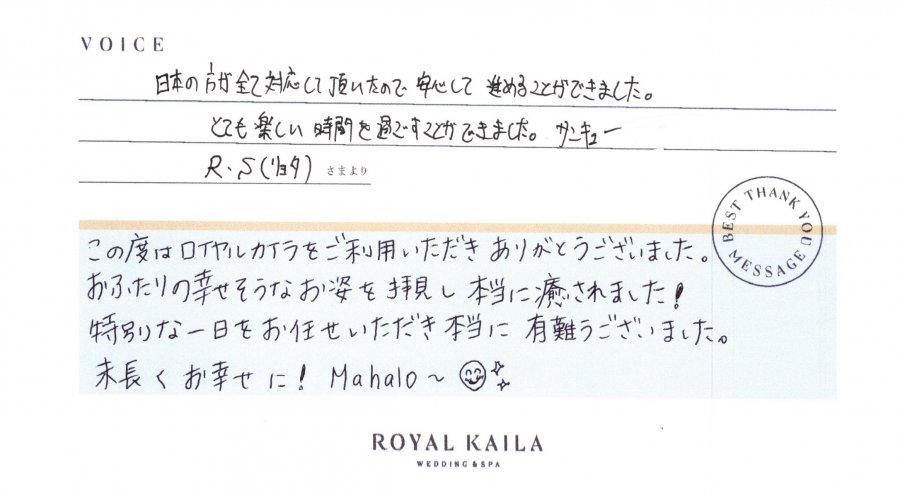 VOICE
日本の方が全て対応して頂いたので安心して進めることができました。
とても楽しい時間を過ごすことができました。サンキュー
R.S(リョウタ) さまより
BEST THANK YOU MESSAGE
この度はロイヤルカイラをご利用いただきありがとうございました。
おふたりの幸せそうなお姿を拝見し本当に癒されました!
特別な一日をお任せいただき本当に有難うございました。
末長くお幸せに! Mahalo~
ROYAL KAILA
WEDDING & SPA